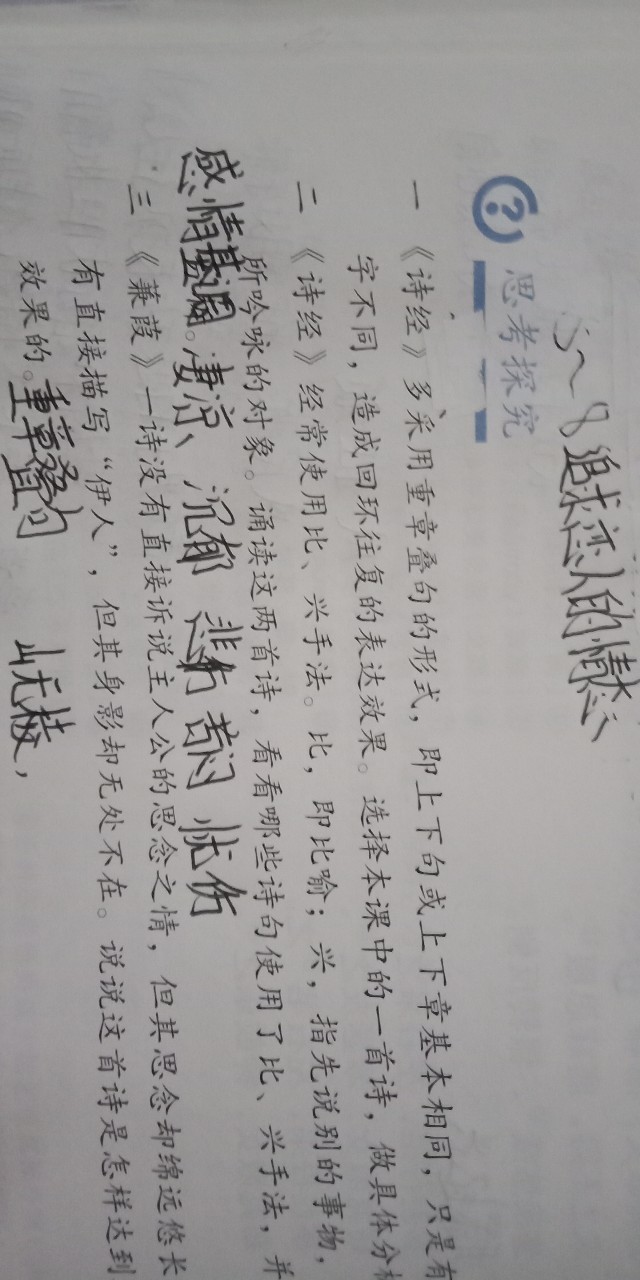 5~8追求恋人的情态
思考探究
一 《诗经》多采用重章叠句的形式，即上下句或上下章基本相同，只是有
字不同，造成回环往复的表达效果。选择本课中的一首诗，做具体分析
二 《诗经》经常使用比、兴手法。比，即比喻；兴，指先说别的事物，
所吟咏的对象。诵读这两首诗，看看哪些诗句使用了比、兴手法，并
感情基调。凄凉、沉郁 悲伤 苦闷 忧伤
三 《蒹葭》一诗没有直接诉说主人公的思念之情，但其思念却绵远悠长
有直接描写“伊人”，但其身影却无处不在。说说这首诗是怎样达到
效果的。重章叠句 山无棱，